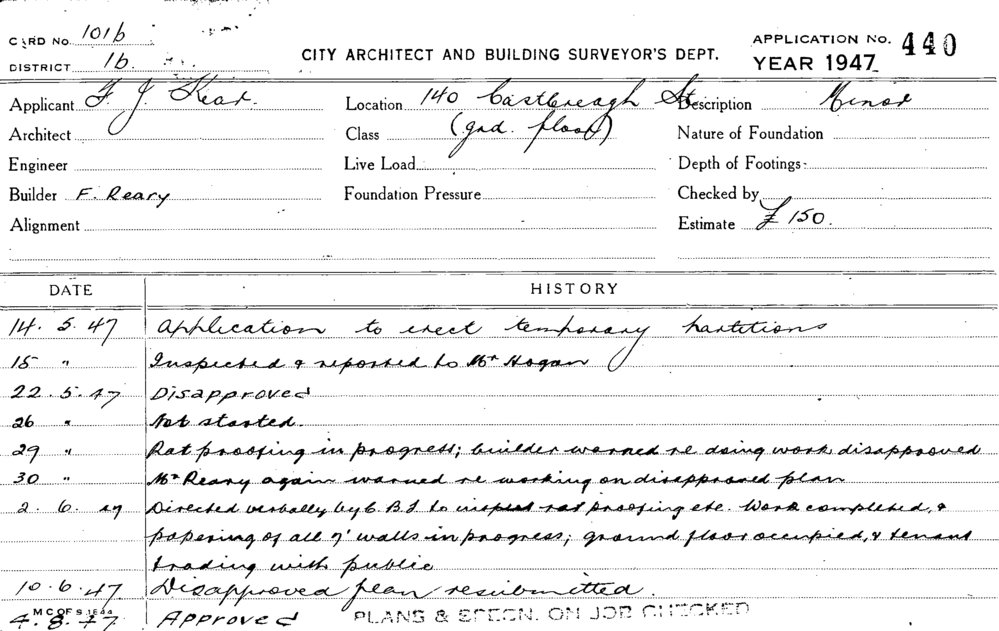 CARD No. 1016
DISTRICT 16.
CITY ARCHITECT AND BUILDING SURVEYOR'S DEPT.
APPLICATION No. 440
YEAR 1947
Applicant F. J. Kear. Location 140 Castlereagh St. Description Minor
Architect Class (gnd. floor) Nature of Foundation
Engineer Live Load Depth of Footings
Builder F. Reary Foundation Pressure Checked by
Alignment Estimate £150.
DATE HISTORY
14. 5. 47 Application to erect temporary partitions
15 " Inspected & reported to Mr Hogan
22. 5. 47 Disapproved
26 " Not started.
29 " Rat proofing in progress; builder warned re doing work disapproved
30 " Mr Reary again warned re working on disapproved plan
2. 6. 47 Directed verbally by C.B.I. to inspect rat proofing etc. Work completed, &
papering of all 7' walls in progress; ground floor occupied, & tenant
trading with public
10. 6. 47 Disapproved plan resubmitted.
M C OF S.
4. 8. 47 Approved PLANS & SPECN. ON JOB CHECKED